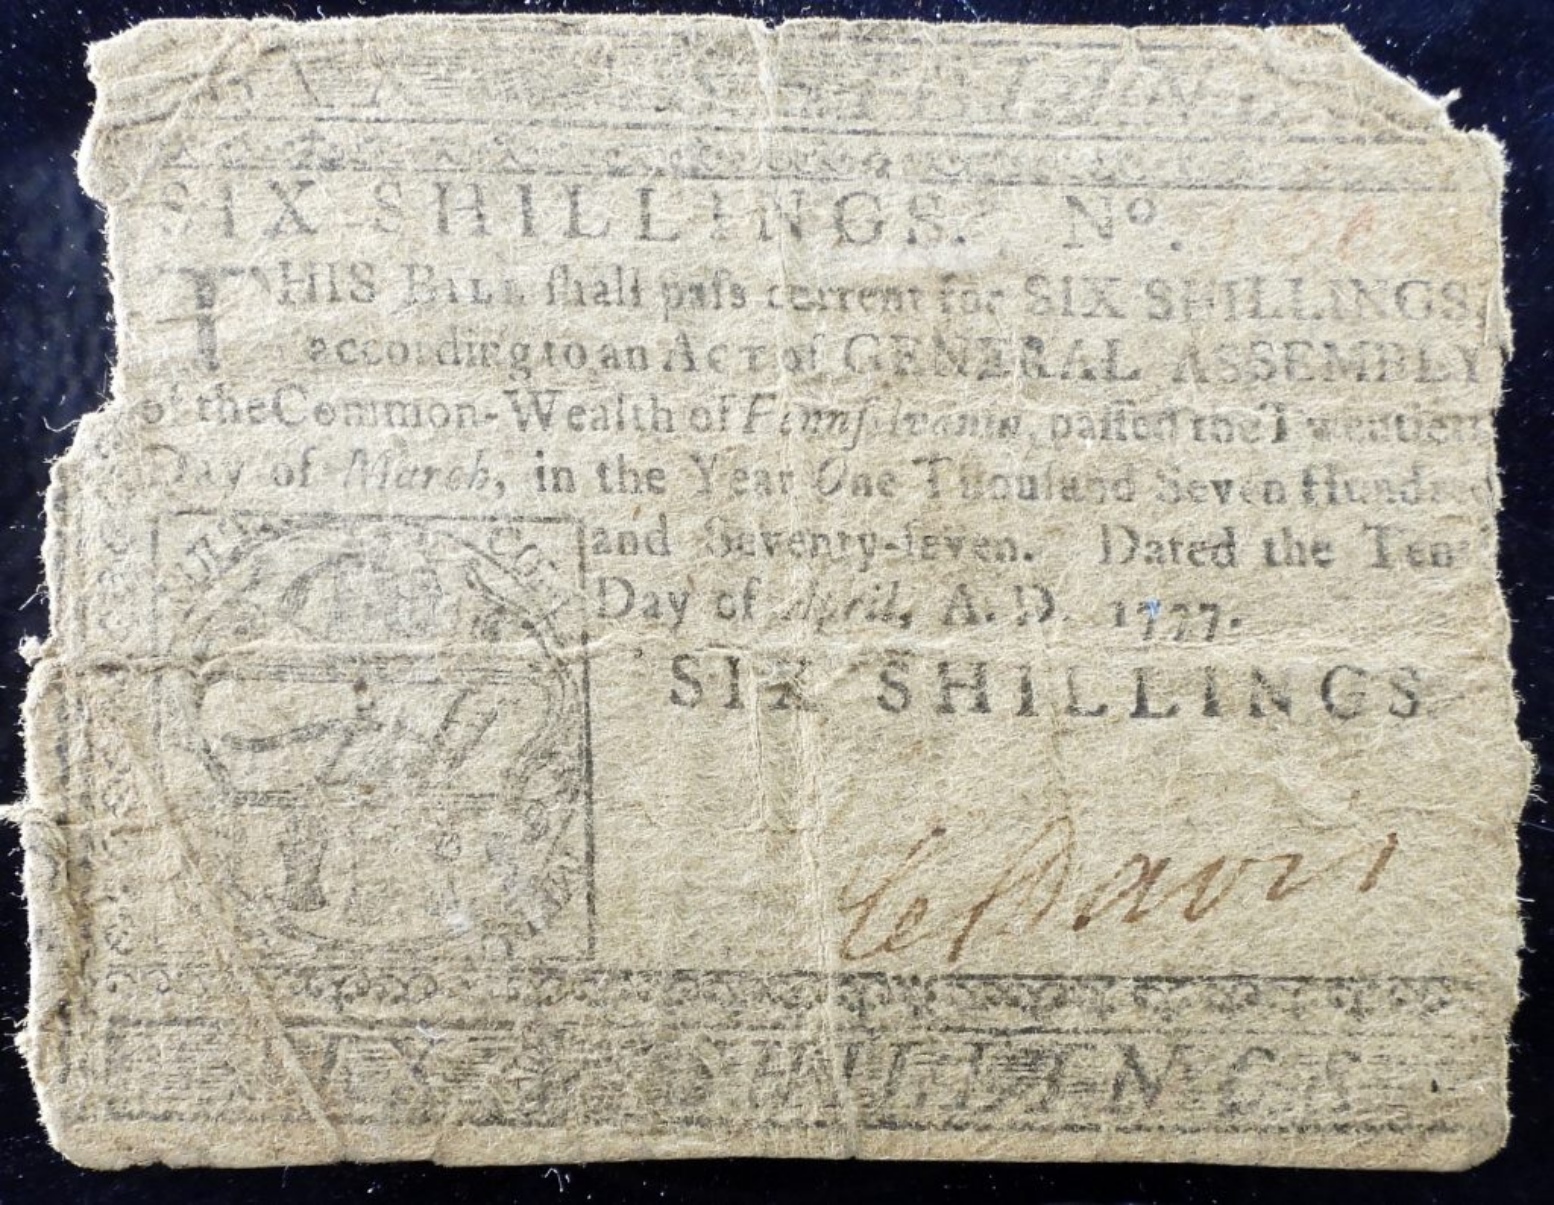 SIX SHILLINGS. No.
THIS BILL ſhall paſs current for SIX SHILLINGS
according to an ACT of GENERAL ASSEMBLY
of the Common-Wealth of Pennſylvania, paſſed the Twentieth
Day of March, in the Year One Thouſand Seven Hundred
and Seventy-ſeven. Dated the Tenth
Day of April, A. D. 1777.
SIX SHILLINGS
Davis
SIX SHILLINGS